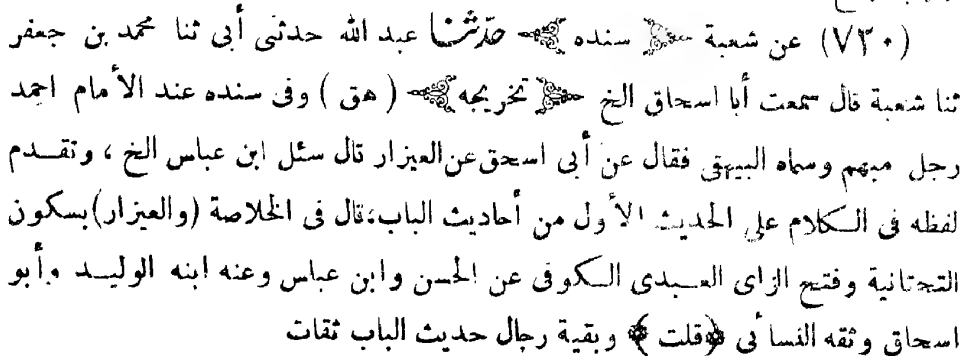 (٧٣٠) عن شعبة ﴿ سنده ﴾ حدثنا عبد الله حدثنى أبى ثنا محمد بن جعفر
ثنا شعبة قال سمعت أبا اسحاق الخ ﴿ تخريجه ﴾ ( هق ) وفى سنده عند الأمام احمد
رجل مبهم وسماه البيهقى فقال عن أبى اسحق عن العيزار قال سئل ابن عباس الخ ، وتقدم
لفظه فى الكلام على الحديث الأول من أحاديث الباب، قال فى الخلاصة (والعيزار) بسكون
التحتانية وفتح الزاى العبدى الكوفى عن الحسن وابن عباس وعنه ابنه الوليد وأبو
اسحاق وثقه النسائى ﴿قلت ﴾ وبقية رجال حديث الباب ثقات